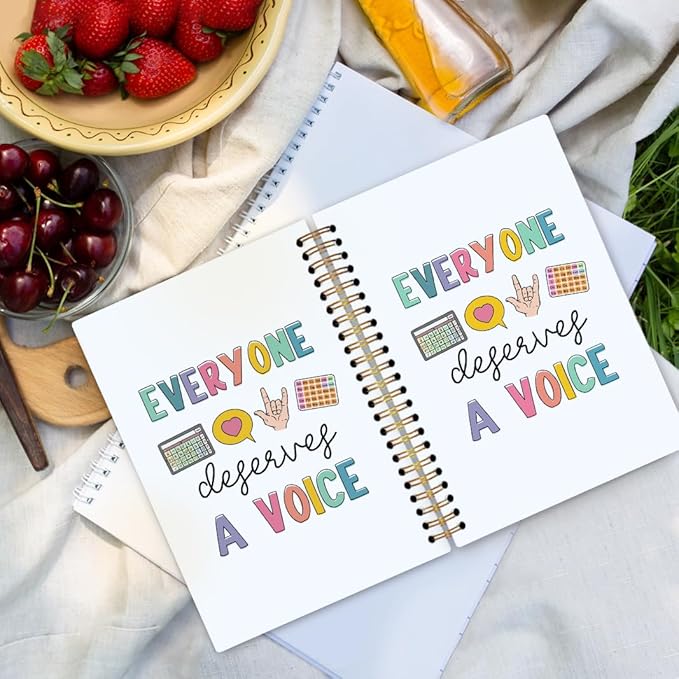 EVERYONE
deserves
A VOICE
EVERYONE
deserves
A VOICE